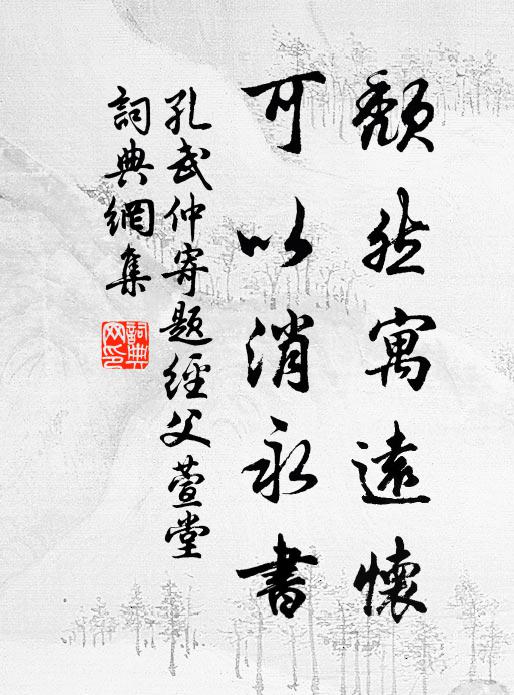 頹然寓遠懷
可以消永書
孔武仲寄題經父萱堂
詞典網集
詞典網印